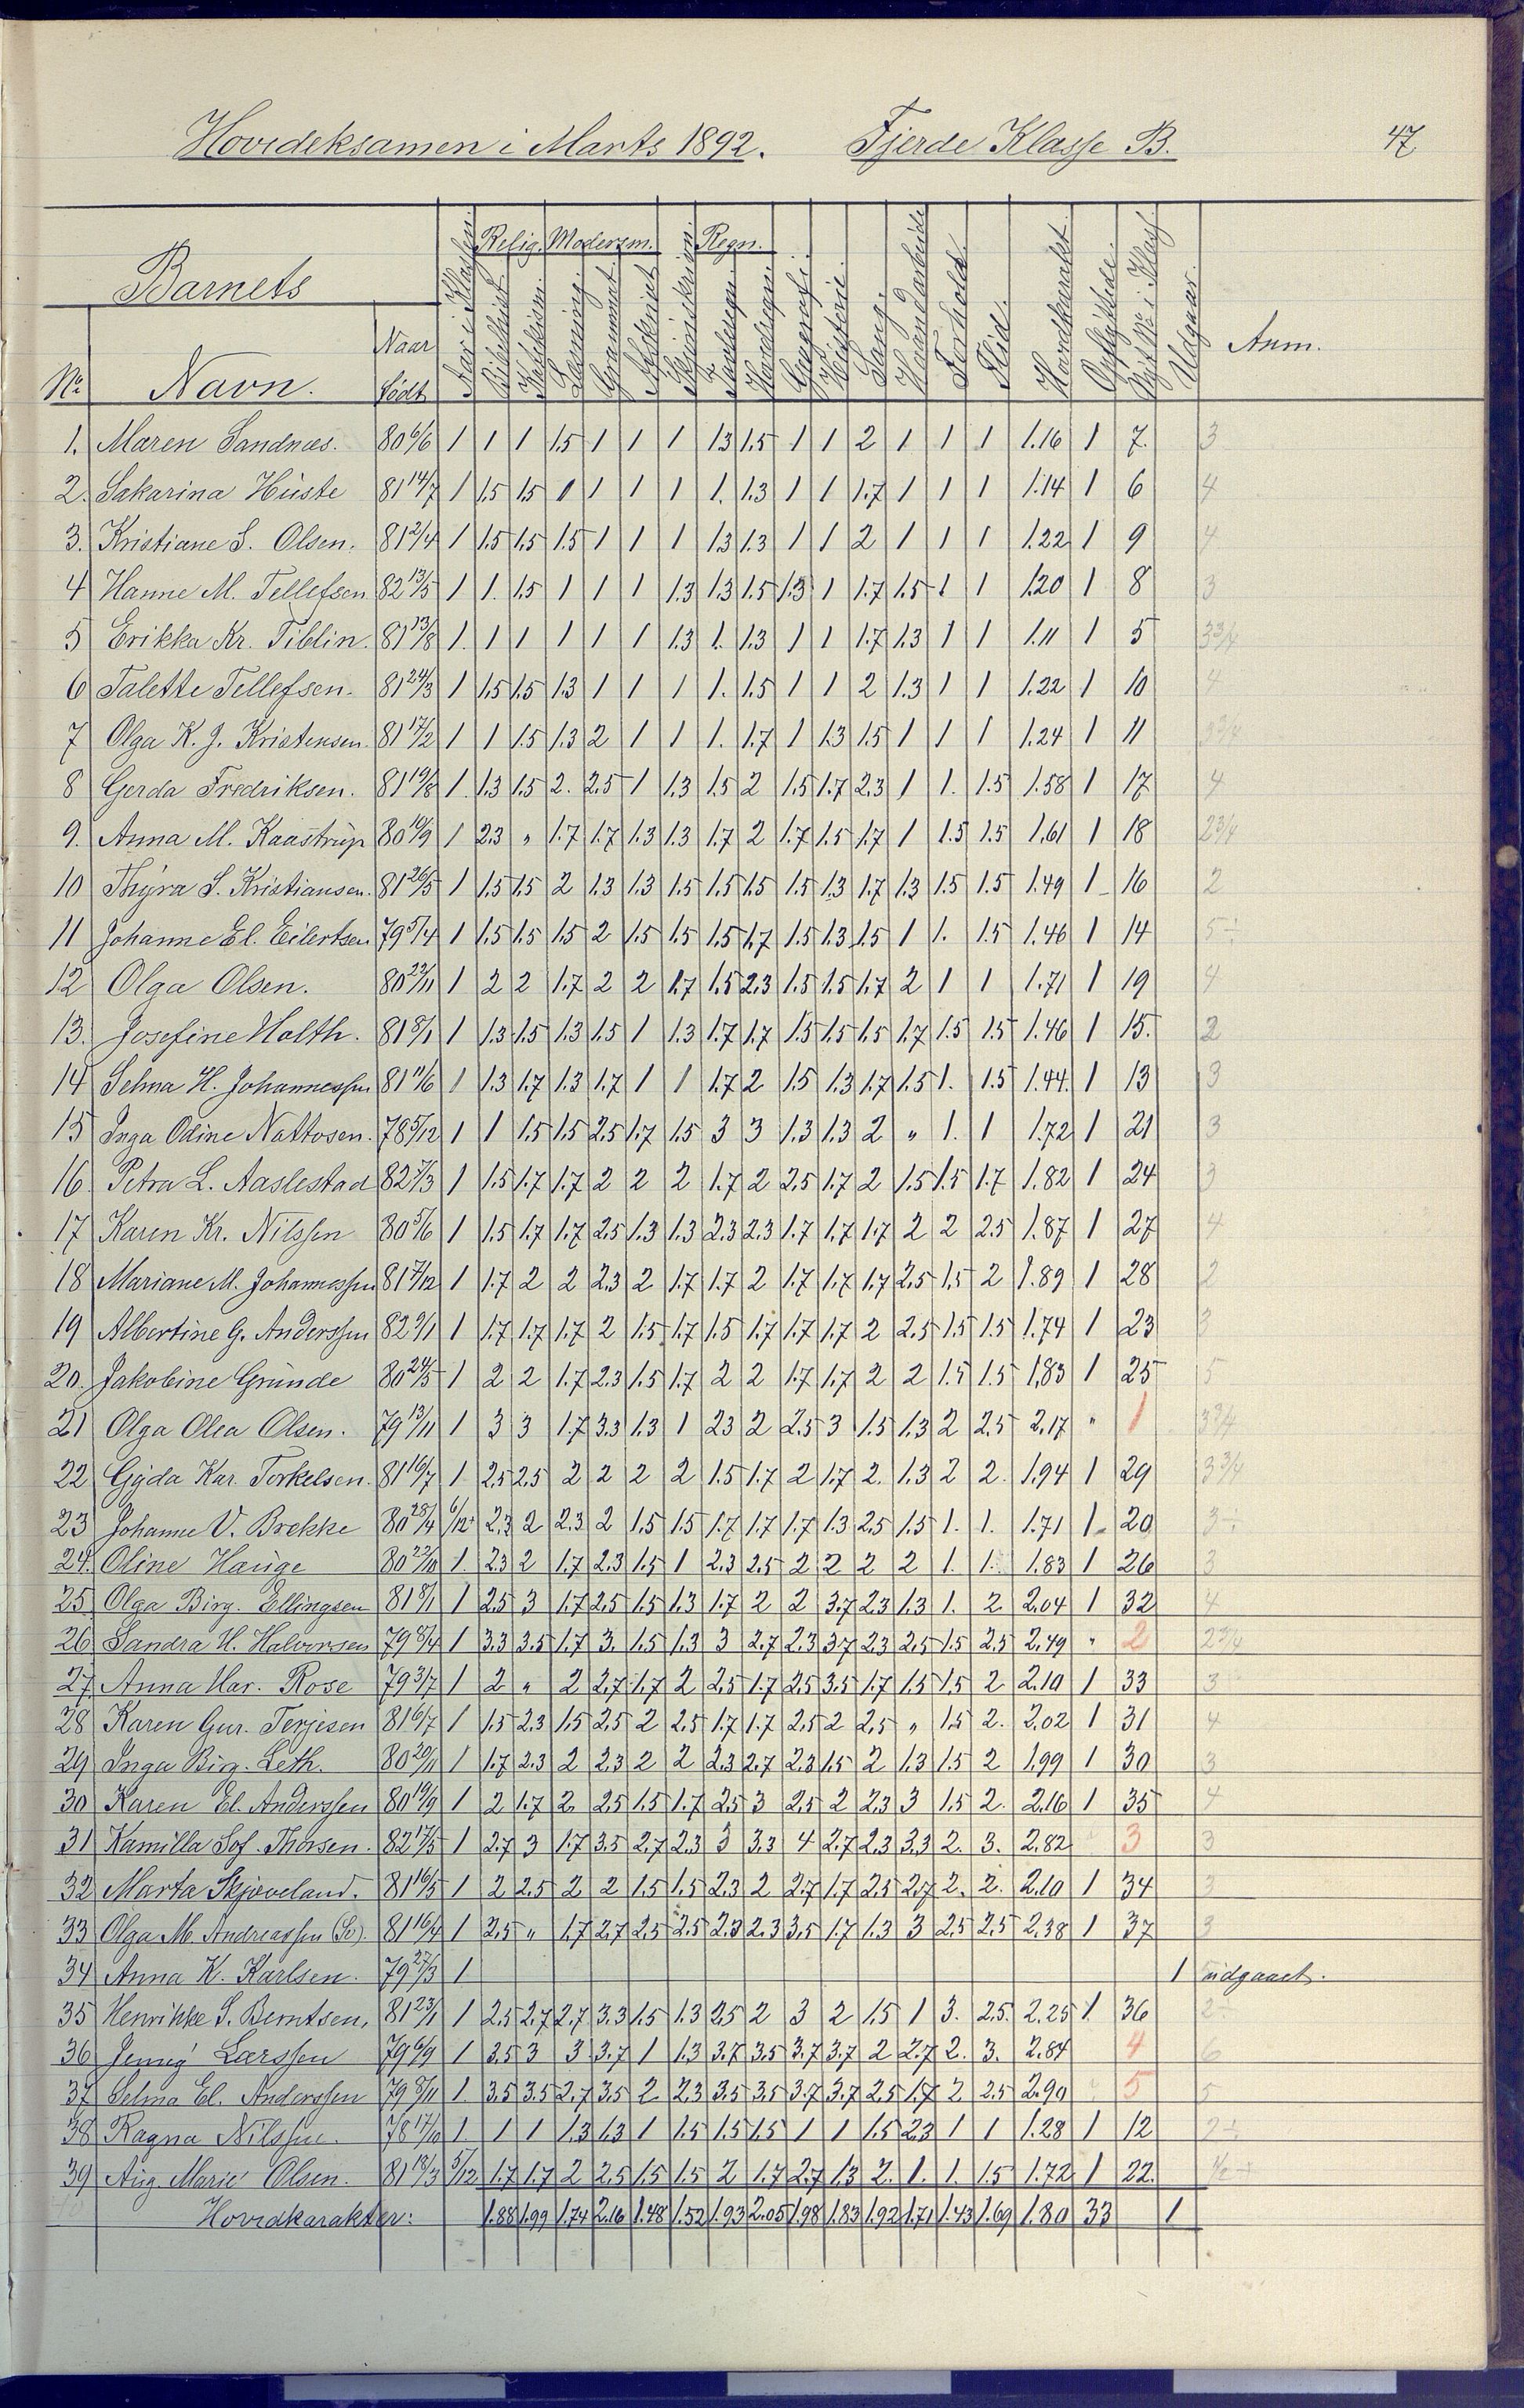 Hovedeksamen i Marts 1892. Fjerde Klasse B. 47
Barnets Aar i Klassen Relig. Modersm. Skjönskrivn. Regn. Geografi. Historie. Sang. Haandarbeide Forhold. Flid. Hovedkarakt. Opflyttede. Udgaar. Anm.
No. Navn. Naar födt
1. Maren Sandnæs. 80 6/6 1 1 1 1.5 1 1 1 1.3 1.5 1 1 2 1 1 1 1.16 1 7. 3
2. Sakarina Hüste 81 14/7 1 1.5 1.5 1 1 1 1 1. 1.3 1 1 1.7 1 1 1 1.14 1 6 4
3. Kristiane S. Olsen. 81 2/4 1 1.5 1.5 1.5 1 1 1 1.3 1.3 1 1 2 1 1 1 1.22 1 9 4
4 Hanne M. Tellefsen 82 13/5 1 1. 1.5 1 1 1 1.3 1.3 1.5 1.3 1 1.7 1.5 1 1 1.20 1 8 3
5 Erikka Kr. Tiblin. 81 13/8 1. 1 1 1 1 1 1.3 1. 1.3 1 1 1.7 1.3 1 1 1.11 1 5 3 3/4
6 Talette Tellefsen. 81 24/3 1 1.5 1.5 1.3 1 1 1 1. 1.5 1 1 2 1.3 1 1 1.22 1 10 4
7 Olga K. J. Kristensen. 81 17/2 1 1 1.5 1.3 2 1 1 1. 1.7 1 1.3 1.5 1 1 1 1.24 1 11
8 Gerda Fredriksen. 81 19/8 1. 1.3 1.5 2. 2.5 1 1.3 1.5 2 1.5 1.7 2.3 1 1. 1.5 1.58 1 17 4
9. Anna M. Kaastrüp 80 10/9 1 2.3 " 1.7 1.7 1.3 1.3 1.7 2 1.7 1.5 1.7 1 1.5 1.5 1.61 1 18 2 3/4
10 Thyra S. Kristiansen. 81 26/5 1 1.5 1.5 2 1.3 1.3 1.5 1.5 1.5 1.5 1.3 1.7 1.3 1.5 1.5 1.49 1 16 2
11 Johanne El. Eilertsen 79 5/4 1 1.5 1.5 1.5 2 1.5 1.5 1.5 1.7 1.5 1.3 1.5 1 1. 1.5 1.46 1 14 5÷
12 Olga Olsen. 80 23/11 1 2 2 1.7 2 2 1.7 1.5 2.3 1.5 1.5 1.7 2 1 1 1.71 1 19 4
13. Josefine Holth. 81 8/1 1 1.3 1.5 1.3 1.5 1 1.3 1.7 1.7 1.5 1.5 1.5 1.7 1.5 1.5 1.46 1 15. 2
14 Selma H. Johannessen 81 11/6 1 1.3 1.7 1.3 1.7 1 1 1.7 2 1.5 1.3 1.7 1.5 1. 1.5 1.44. 1 13 3
15 Inga Odine Nattvosen. 78 5/12 1 1 1.5 1.5 2.5 1.7 1.5 3 3 1.3 1.3 2 " 1. 1 1.72 1 21 3
16. Petra L. Aaslestad 82 7/3 1 1.5 1.7 1.7 2 2 2 1.7 2 2.5 1.7 2 1.5 1.5 1.7 1.82 1 24 3
17 Karen Kr. Nilssen 80 5/6 1 1.5 1.7 1.7 2.5 1.3 1.3 2.3 2.3 1.7 1.7 1.7 2 2 2.5 1.87 1 27 4
18 Mariane M. Johannessen 81 7/12 1 1.7 2 2 2.3 2 1.7 1.7 2 1.7 1.7 1.7 2.5 1.5 2 1.89 1 28 2
19 Albertine G. Anderssen 82 9/1 1 1.7 1.7 1.7 2 1.5 1.7 1.5 1.7 1.7 1.7 2 2.5 1.5 1.5 1.74 1 23 3
20. Jakobine Gründe 80 24/5 1 2 2 1.7 2.3 1.5 1.7 2 2 1.7 1.7 2 2 1.5 1.5 1.83 1 25 5
21 Olga Olea Olsen. 79 13/11 1 3 3 1.7 3.3 1.3 1 2.3 2 2.5 3 1.5 1.3 2 2.5 2.17 " 1 3 3/4
22 Gyda Kar. Torkelsen. 81 10/7 1 2.5 2.5 2 2 2 2 1.5 1.7 2 1.7 2. 1.3 2 2. 1.94 1 29 3 3/4
23 Johanne V. Brekke 80 28/4 6/12 2.3 2 2.3 2 1.5 1.5 1.7 1.7 1.7 1.3 2.5 1.5 1. 1. 1.71 1 20 3÷
24. Oline Hauge 80 23/10 1. 2.3 2 1.7 2.3 1.5 1 2.3 2.5 2 2 2 2 1. 1. 1.83 1 26 3
25 Olga Birg. Ellingsen 81 8/1 1 2.5 3 1.7 2.5 1.5 1.3 1.7 2 2 3.7 2.3 1.3 1. 2 2.04 1 32 4
26 Sandra H. Halvorsen 79 8/4 1 3.3 3.5 1.7 3. 1.5 1.3 3 2.7 2.3 3.7 2.3 2.5 1.5 2.5 2.49 " 2 2 3/4
27 Anna Mar. Rose 79 3/7 1 2 " 2 2.7 1.7 2 2.5 1.7 2.5 3.5 1.7 1.5 1.5 2 2.10 1 33 3
28 Karen Gur. Terjesen 81 6/7 1 1.5 2.3 1.5 2.5 2 2.5 1.7 1.7 2.5 2 2.5 " 1.5 2. 2.02 1 31 4
29 Inga Birg. Leth. 80 20/11 1 1.7 2.3 2 2.3 2 2 2.3 2.7 2.3 1.5 2 1.3 1.5 2 1.99 1 30 3
30 Karen El. Anderssen 80 19/9 1 2 1.7 2 2.5 1.5 1.7 2.5 3 2.5 2 2.3 3 1.5 2. 2.16 1 35 4
31 Kamilla Sof. Thorsen. 82 17/5 1 2.7 3 1.7 3.5 2.7 2.3 3 3.3 4 2.7 2.3 3.3 2. 3. 2.82 3 3
32 Marta Skjæveland. 81 16/5 1 2 2.5 2 2 1.5 1.5 2.3 2 2.7 1.7 2.5 2.7 2. 2. 2.10 1 34 3
33 Olga M. Andreassen (Sv). 81 16/4 1 2.5 " 1.7 2.7 2.5 2.5 2.3 2.3 3.5 1.7 1.3 3 2.5 2.5 2.38 1 37 3
34 Anna K. Karlsen. 79 27/3 1. 1 udgaaet.
35 Henrikke S. Berntsen, 81 23/1 1 2.5 2.7 2.7 3.3 1.5 1.3 2.5 2 3 2 1.5 1 3. 2.5. 2.25 1. 36 2÷
36 Jenny Larssen 79 6/9 1 3.5 3 3 3.7 1 1.3 3.7 3.5 3.7 3.7 2 2.7 2. 3. 2.84 4 6
37 Selma El. Anderssen 79 8/11 1. 3.5 3.5 2.7 3.5 2 2.3 3.5 3.5 3.7 3.7 2.5 1.7 2 2.5 2.90 5 5
38 Ragna Nilssen. 78 17/10 1. 1 1 1.3 1.3 1 1.5 1.5 1.5 1 1 1.5 2.3 1 1 1.28 1 12 2÷
39 Aug. Marie Olsen. 81 18/3 5/12 1.7 1.7 2 2.5 1.5 1.5 2 1.7 2.7 1.3 2. 1. 1. 1.5 1.72 1 22.
Hovedkarakter: 1.88 1.99 1.74 2.16 1.48 1.52 1.93 2.05 1.98 1.83 1.92 1.71 1.43 1.69 1.80 33 1